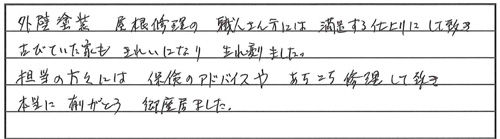 外壁塗装 屋根修理の職人さん方には 満足する仕上りにして頂き
古びていた家も きれいになり 生れ変りました。
担当の方々には 保険のアドバイスや あちこち修理して頂き
本当に有がとう御座居ました。